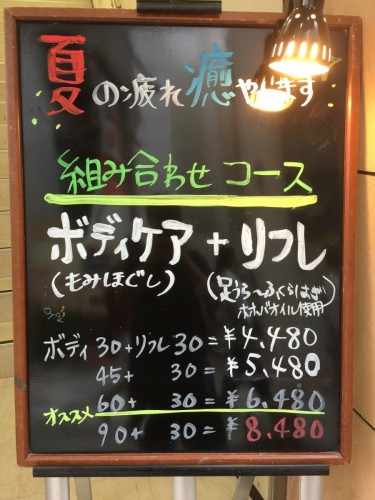 夏の疲れ癒やします
組み合わせ コース
ボディケア + リフレ
(もみほぐし) (足うら〜ふくらはぎ
ホホバオイル使用)
ボディ 30+リフレ 30=¥4,480
45+ 30=¥5,480
オススメ 60+ 30=¥6,480
90+ 30=¥8,480